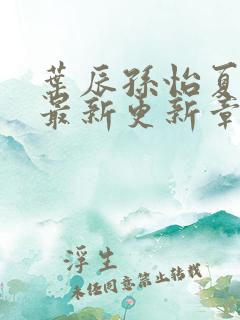 葉辰孫怡夏
最新更新章
浮生
未经同意禁止转载